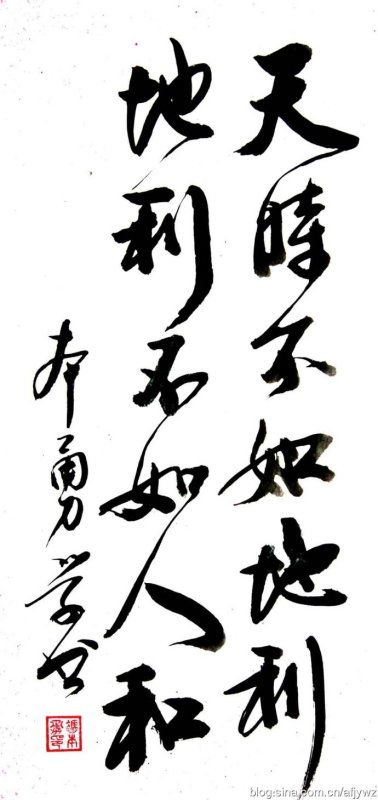 天時不如地利
地利不如人和
本勇学书
blog.sina.com.cn/afjywz